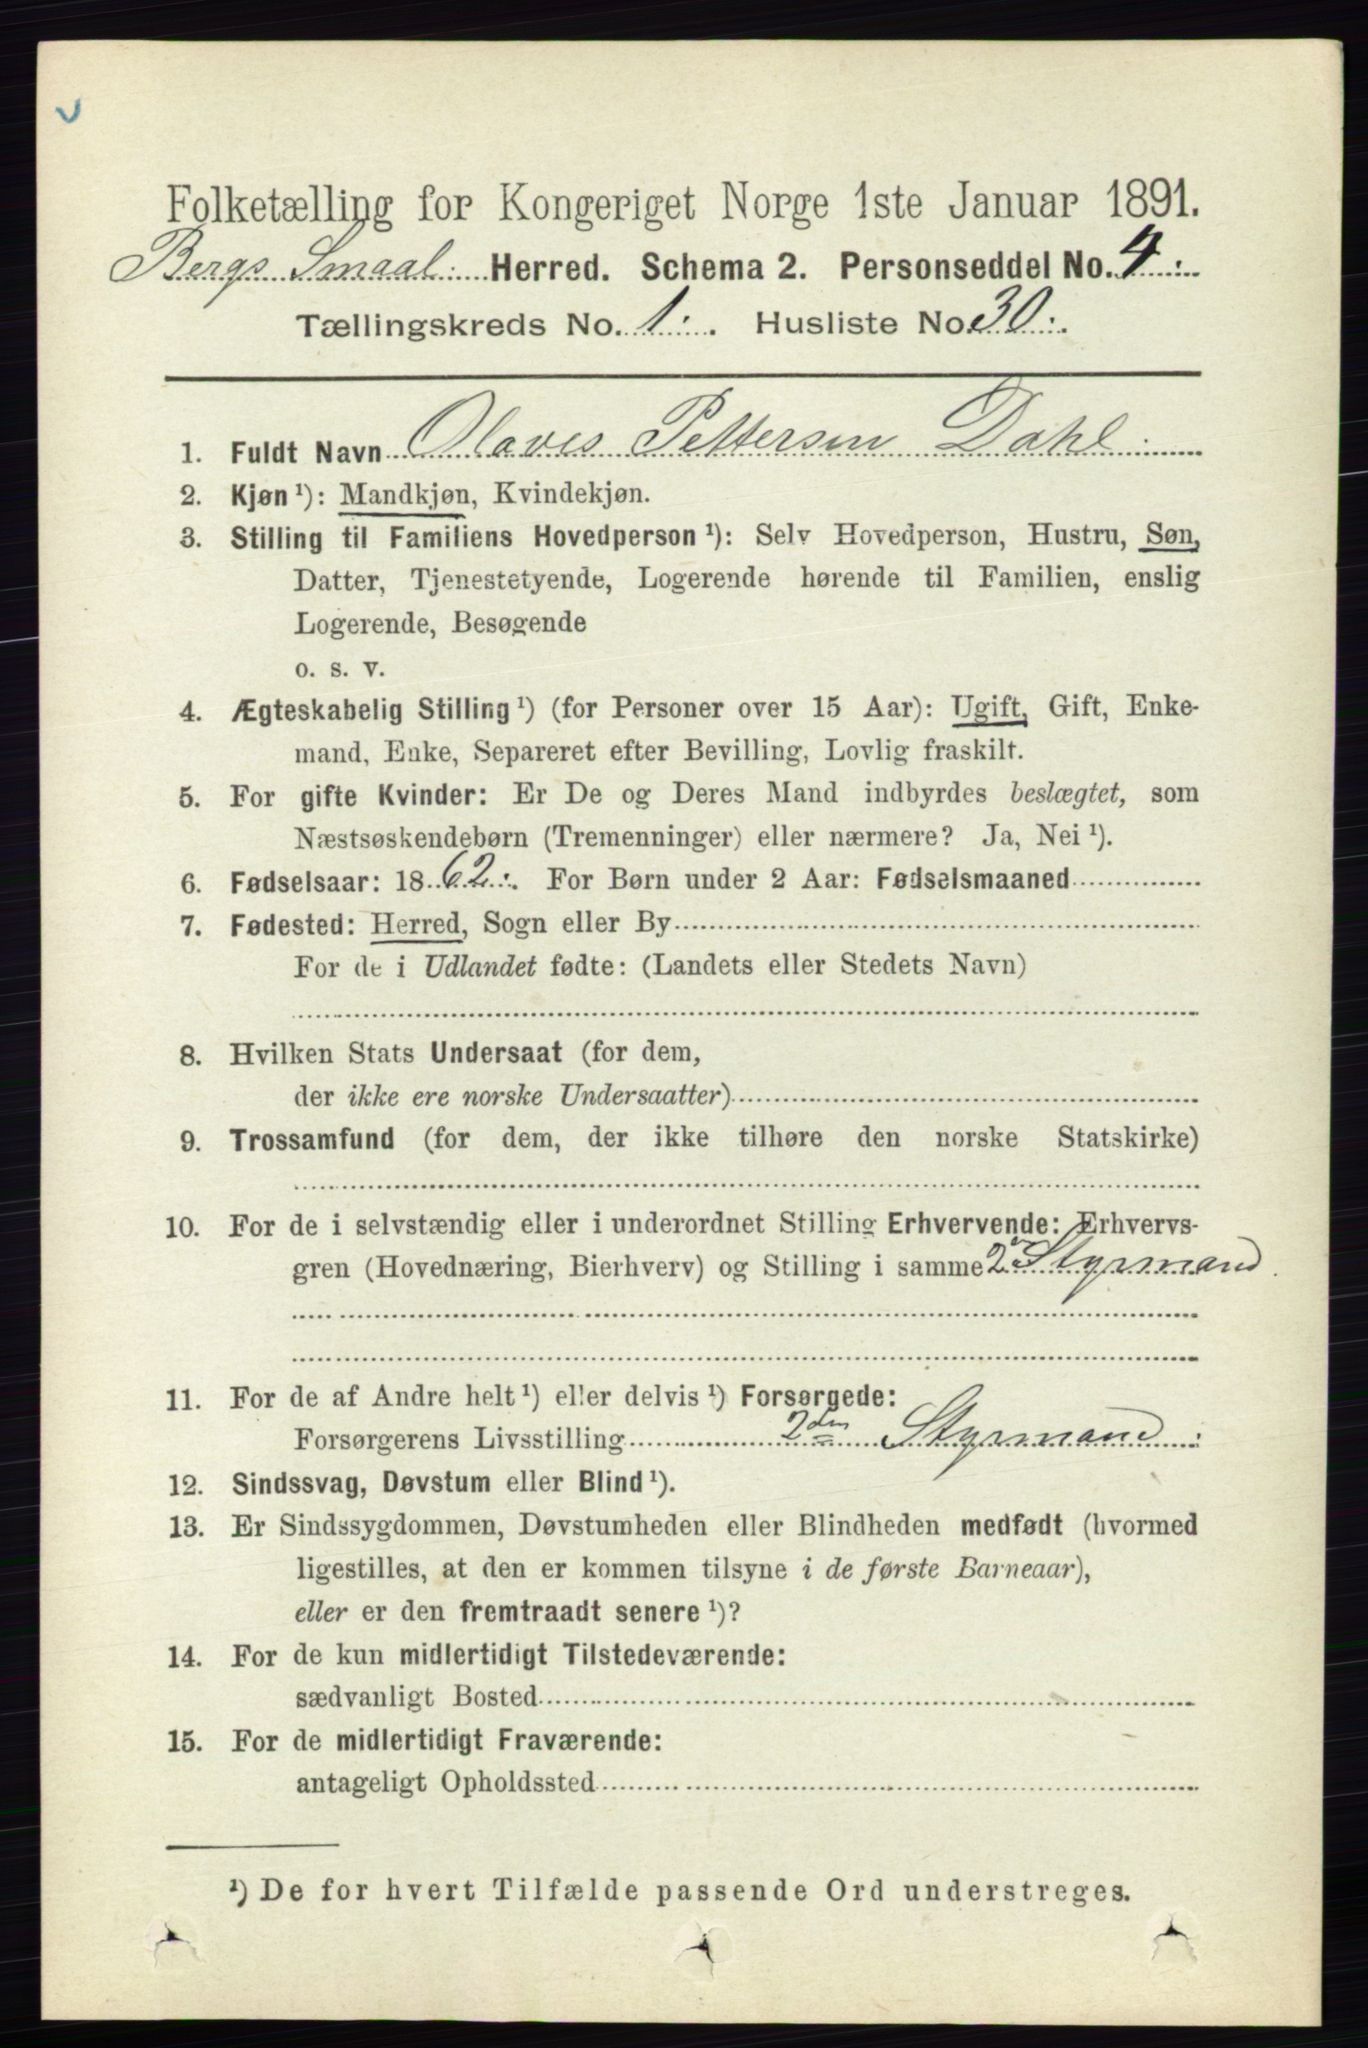 Folketælling for Kongeriget Norge 1ste Januar 1891.
Bergs Smaal: Herred. Schema 2. Personseddel No. 4:
Tællingskreds No. 1: Husliste No. 30:
1. Fuldt Navn Olaves Pettersen Dahl
2. Kjøn ¹): Mandkjøn, Kvindekjøn.
3. Stilling til Familiens Hovedperson ¹): Selv Hovedperson, Hustru, Søn,
Datter, Tjenestetyende, Logerende hørende til Familien, enslig
Logerende, Besøgende
o. s. v.
4. Ægteskabelig Stilling ¹) (for Personer over 15 Aar): Ugift, Gift, Enke-
mand, Enke, Separeret efter Bevilling, Lovlig fraskilt.
5. For gifte Kvinder: Er De og Deres Mand indbyrdes beslægtet, som
Næstsøskendebørn (Tremenninger) eller nærmere? Ja, Nei ¹).
6. Fødselsaar: 1862. For Børn under 2 Aar: Fødselsmaaned
7. Fødested: Herred, Sogn eller By
For de i Udlandet fødte: (Landets eller Stedets Navn)
8. Hvilken Stats Undersaat (for dem,
der ikke ere norske Undersaatter)
9. Trossamfund (for dem, der ikke tilhøre den norske Statskirke)
10. For de i selvstændig eller i underordnet Stilling Erhvervende: Erhvervs-
gren (Hovednæring, Bierhverv) og Stilling i samme 2n Styrmand
11. For de af Andre helt ¹) eller delvis ¹) Forsørgede:
Forsørgerens Livsstilling 2den Styrmand
12. Sindssvag, Døvstum eller Blind ¹).
13. Er Sindssygdommen, Døvstumheden eller Blindheden medfødt (hvormed
ligestilles, at den er kommen tilsyne i de første Barneaar),
eller er den fremtraadt senere ¹)?
14. For de kun midlertidigt Tilstedeværende:
sædvanligt Bosted
15. For de midlertidigt Fraværende:
antageligt Opholdssted
¹) De for hvert Tilfælde passende Ord understreges.